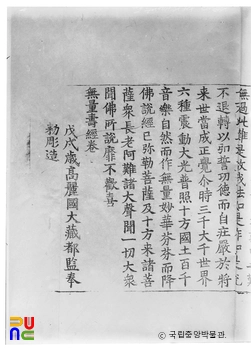 不退轉以弘誓功德而自莊嚴於將
來世當成正覺尒時三千大千世界
六種震動大光普照十方國土百千
音樂自然而作無量妙華芬芬而降
佛說經已弥勒菩薩及十方來諸菩
薩衆長老阿難諸大聲聞一切大衆
聞佛所說靡不歡喜
無量壽經卷
戊戌歲高麗國大藏都監奉
勑彫造
ⓒ 국립중앙박물관